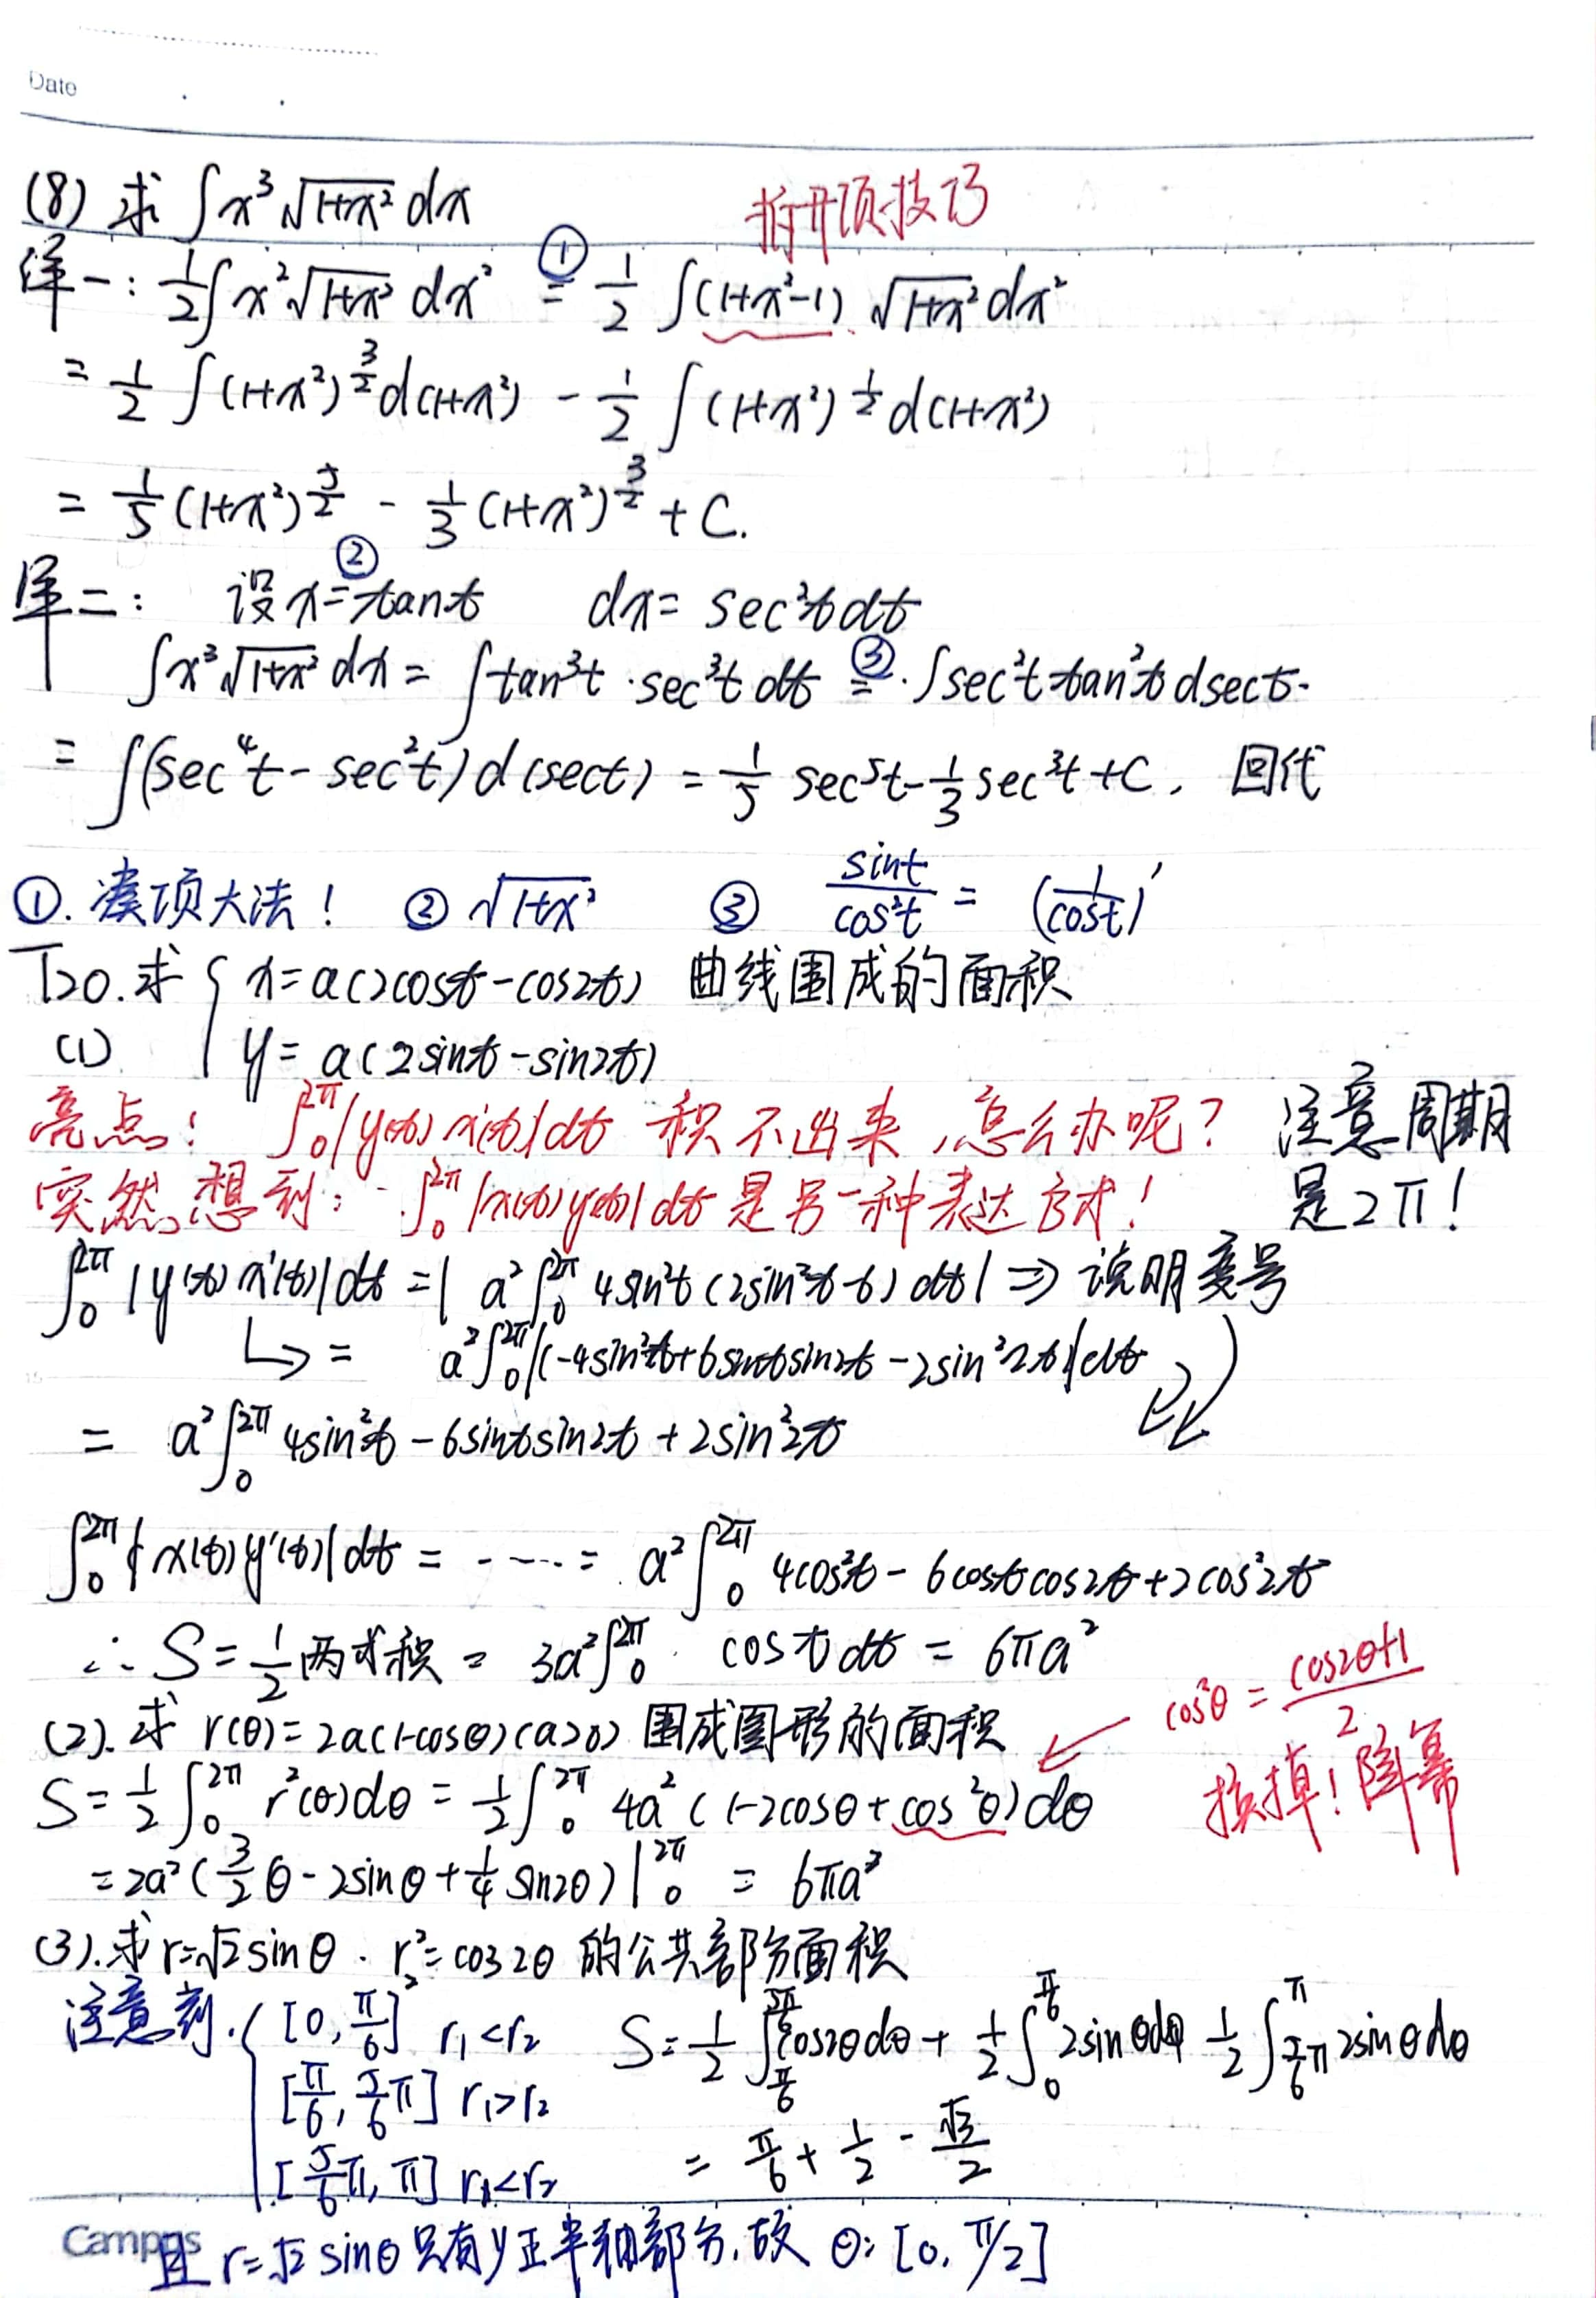 Date
(8) 求 ∫x³√(1+x²) dx 拆开项技巧
解一: 1/2∫x²√(1+x²) dx² ①= 1/2 ∫(1+x²-1) √(1+x²) dx²
= 1/2 ∫(1+x²)^(3/2) d(1+x²) - 1/2 ∫(1+x²)^(1/2) d(1+x²)
= 1/5 (1+x²)^(5/2) - 1/3 (1+x²)^(3/2) + C.
解二: 设x ②= tant dx = sec²t dt
∫x³√(1+x²) dx = ∫tan³t · sec³t dt ③= ∫sec²t tan²t dsect.
= ∫(sec⁴t - sec²t) d(sect) = 1/5 sec⁵t - 1/3 sec³t + C, 回代
①. 凑项大法! ② √(1+x²) ③ sint/cos²t = (1/cost)'
T20. 求 { x = a(2cost - cos2t) 曲线围成的面积
(1) y = a(2sint - sin2t)
亮点: ∫₀^2π |y(t) x'(t)| dt 积不出来, 怎么办呢? 注意周期
突然想到: ∫₀^2π |x(t) y'(t)| dt 是另一种表达方式! 是2π!
∫₀^2π |y(t) x'(t)| dt = | a² ∫₀^2π 4sin²t (2sin²t-6) dt | ⇒ 说明变号
↳ = a² ∫₀^2π |(-4sin²t + 6sintsin2t - 2sin²2t)| dt
= a² ∫₀^2π 4sin²t - 6sintsin2t + 2sin²2t
∫₀^2π |x(t) y'(t)| dt = ----- = a² ∫₀^2π 4cos²t - 6costcos2t + 2cos²2t
∴ S = 1/2 两式积 = 3a² ∫₀^2π cost dt = 6πa²
cos²θ = (cos2θ+1)/2
(2). 求 r(θ) = 2a(1-cosθ) (a>0) 围成图形的面积
换掉! 降幂
S = 1/2 ∫₀^2π r²(θ)dθ = 1/2 ∫₀^2π 4a² (1-2cosθ+cos²θ) dθ
= 2a² (3/2 θ - 2sinθ + 1/4 sin2θ) |₀^2π = 6πa²
(3). 求 r=√2 sinθ . r²=cos2θ 的公共部分面积
注意到. { [0, π/6] r₁<r₂ S = 1/2 ∫_(π/6)^(5π/6) cos2θdθ + 1/2 ∫₀^(π/6) 2sinθdθ 1/2 ∫_(5/6π)^π 2sinθdθ
[π/6, 5/6π] r₁>r₂
[5/6π, π] r₁<r₂ = π/6 + 1/2 - √3/2
Campus
且 r=√2 sinθ 只有y正半轴部分, 故 θ: [0, π/2]